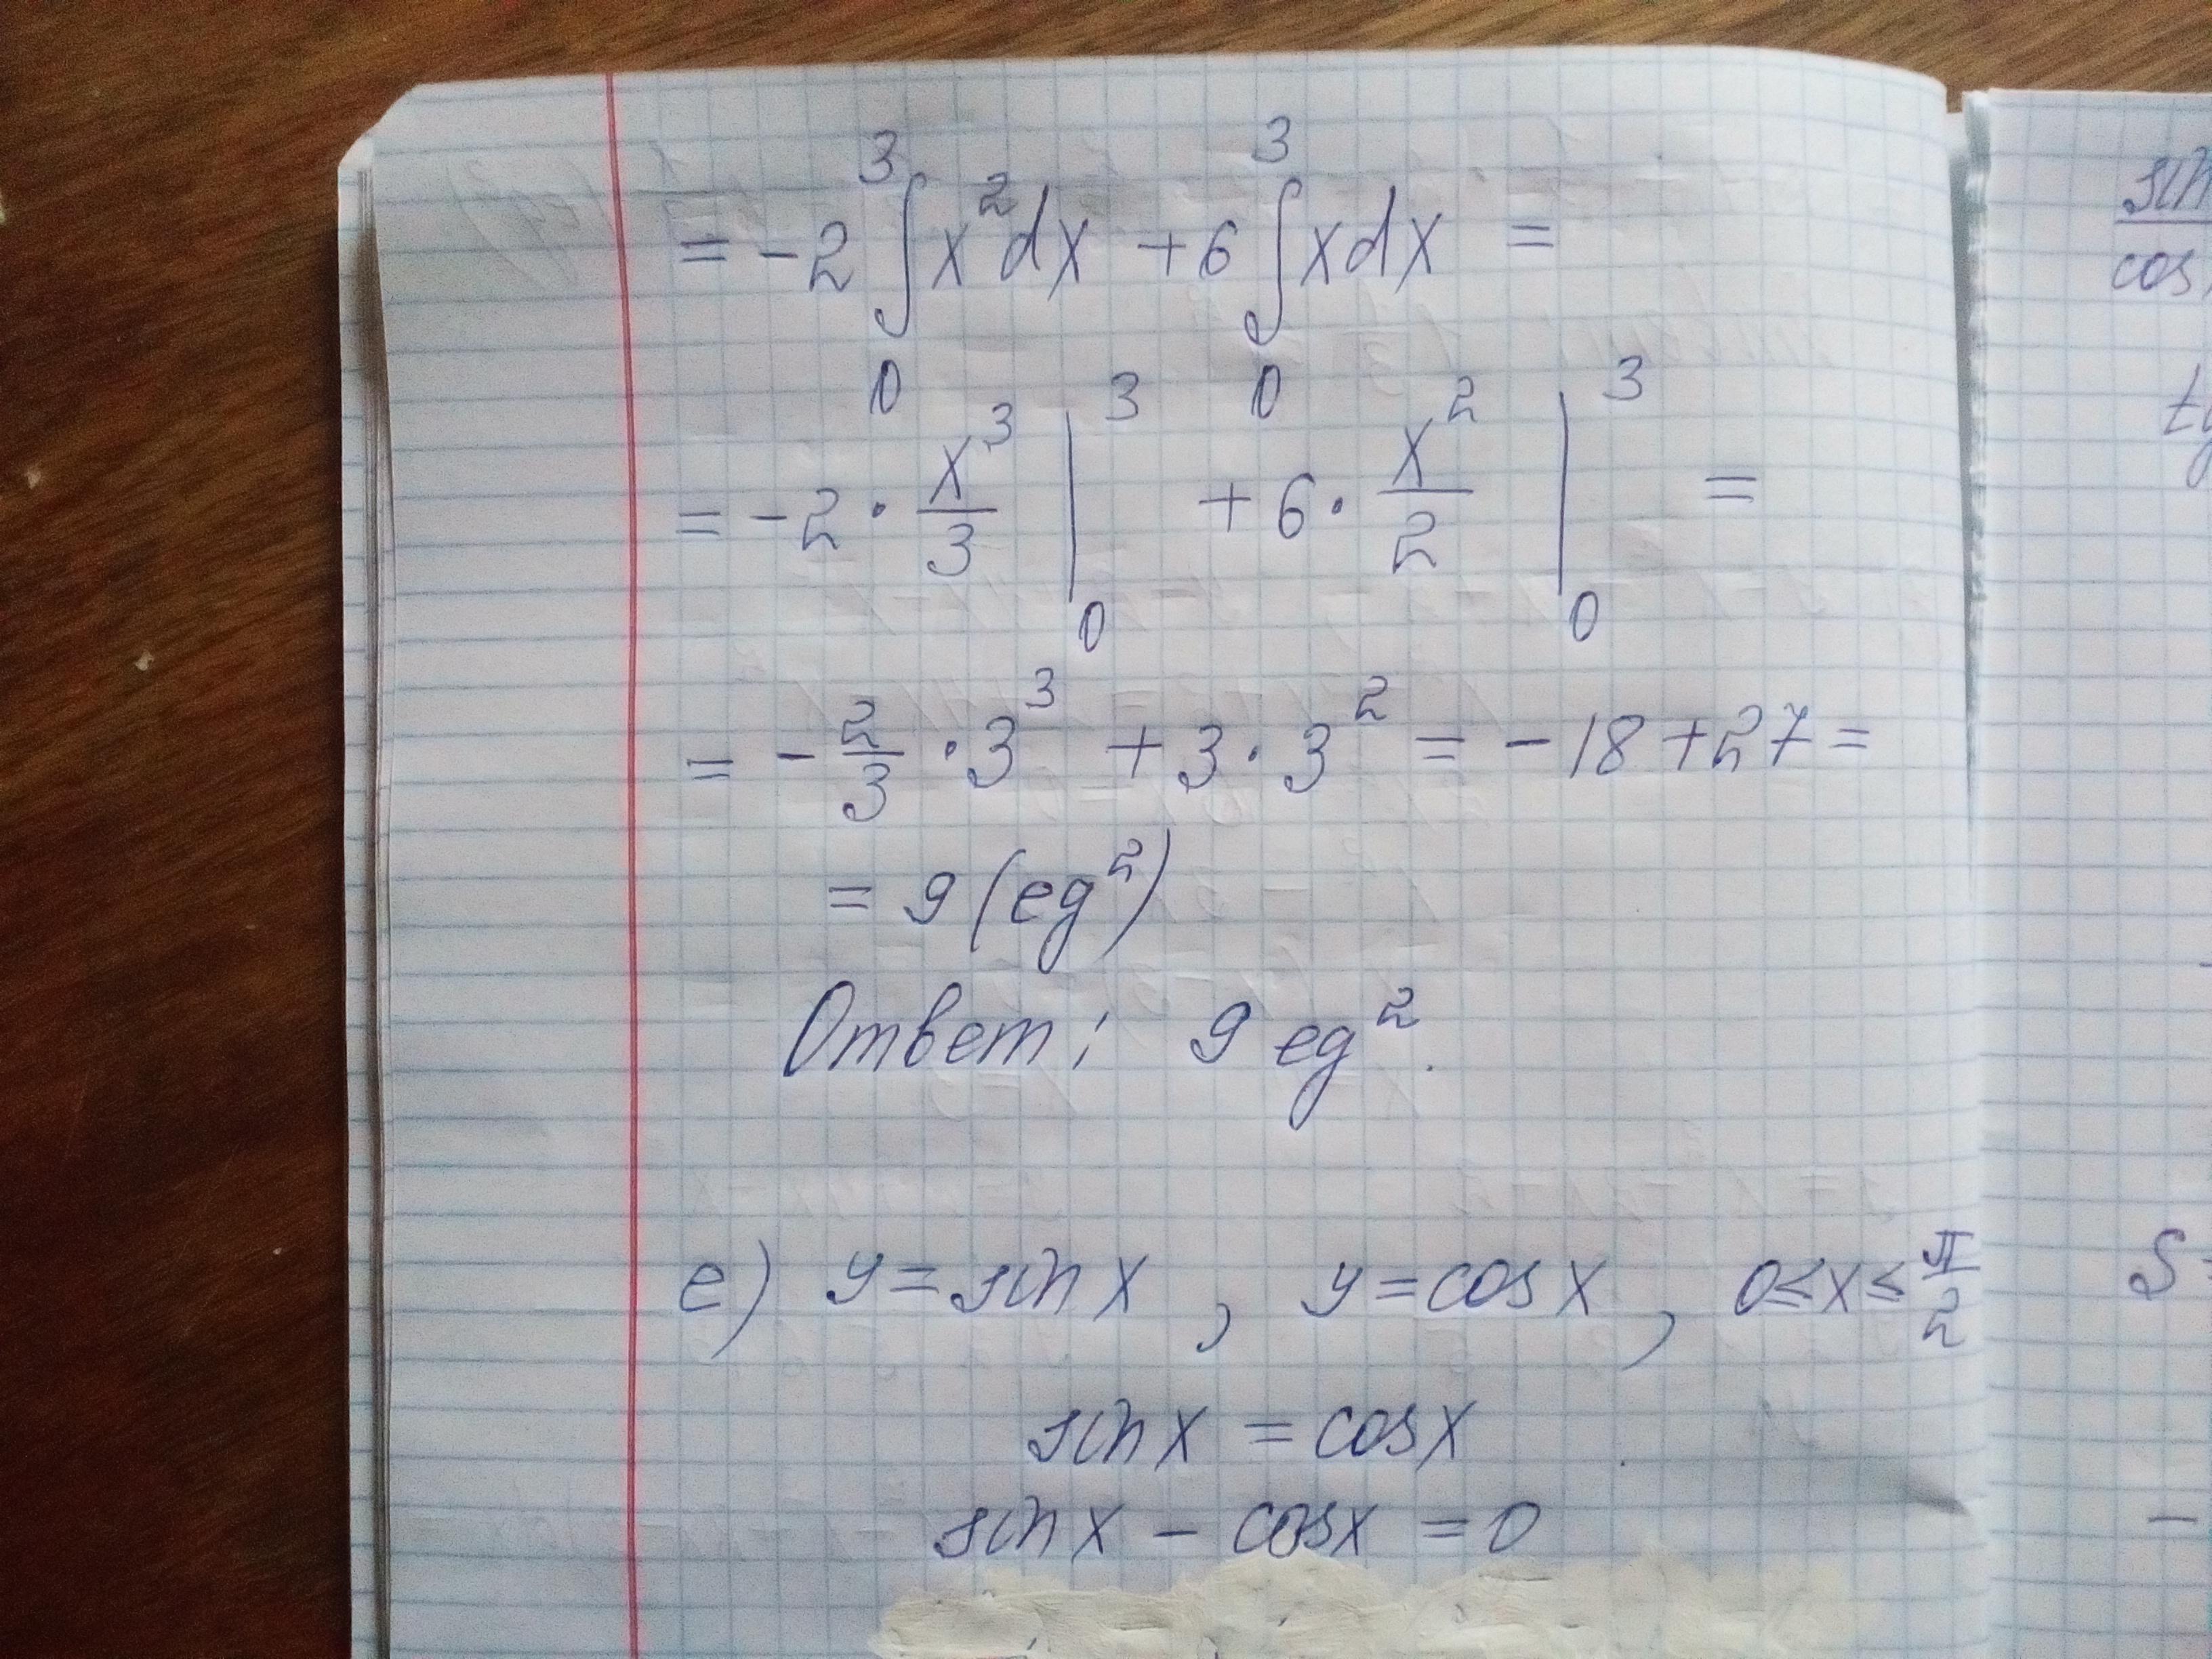 = -2 ∫₀³ x² dx + 6 ∫₀³ x dx =
= -2 · x³/3 |₀³ + 6 · x²/2 |₀³ =
= - 2/3 · 3³ + 3 · 3² = -18 + 27 =
= 9 (ед²)
Ответ: 9 ед².
е) y = sin x, y = cos x, 0 ≤ x ≤ π/2
sin x = cos x
sin x - cos x = 0